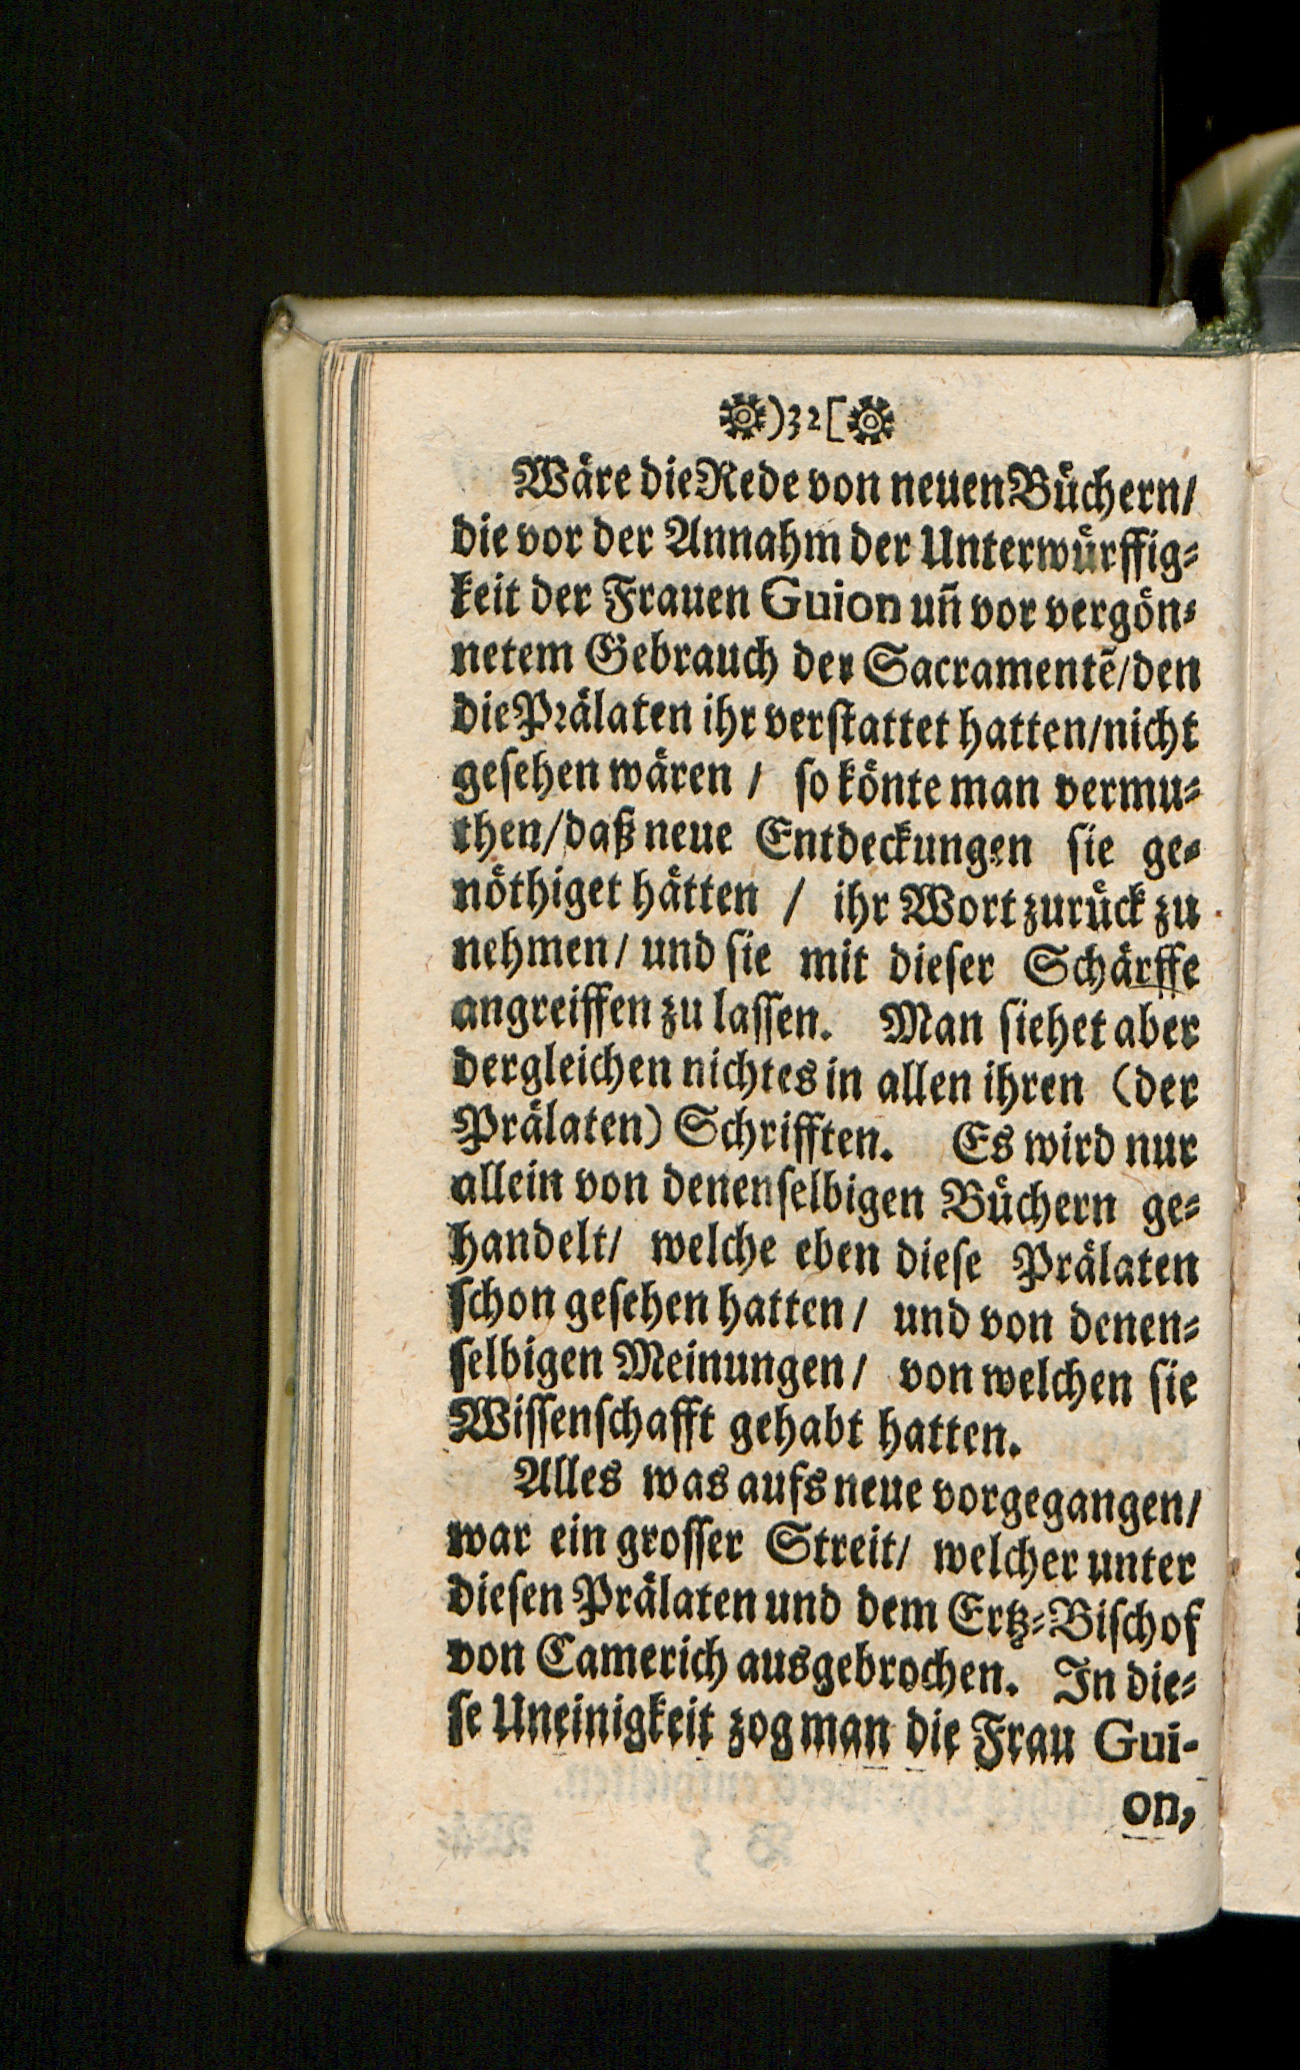 )32[
Wäre die Rede von neuen Büchern/
die vor der Annahm der Unterwürffig⸗
keit der Frauen Guion uñ vor vergön⸗
netem Gebrauch der Sacramentẽ/den
die Prälaten ihr verſtattet hatten/nicht
geſehen wären / ſo könte man vermu⸗
then/daß neue Entdeckungen ſie ge⸗
nöthiget hätten / ihr Wort zurück zu
nehmen/ und ſie mit dieſer Schärffe
angreiffen zu laſſen. Man ſiehet aber
dergleichen nichtes in allen ihren (der
Prälaten) Schrifften. Es wird nur
allein von denenſelbigen Büchern ge⸗
handelt/ welche eben dieſe Prälaten
ſchon geſehen hatten/ und von denen⸗
ſelbigen Meinungen/ von welchen ſie
Wiſſenſchafft gehabt hatten.
Alles was aufs neue vorgegangen/
war ein groſſer Streit/ welcher unter
dieſen Prälaten und dem Ertz⸗Biſchof
von Camerich ausgebrochen. In die⸗
ſe Uneinigkeit zog man die Frau Gui-
on,